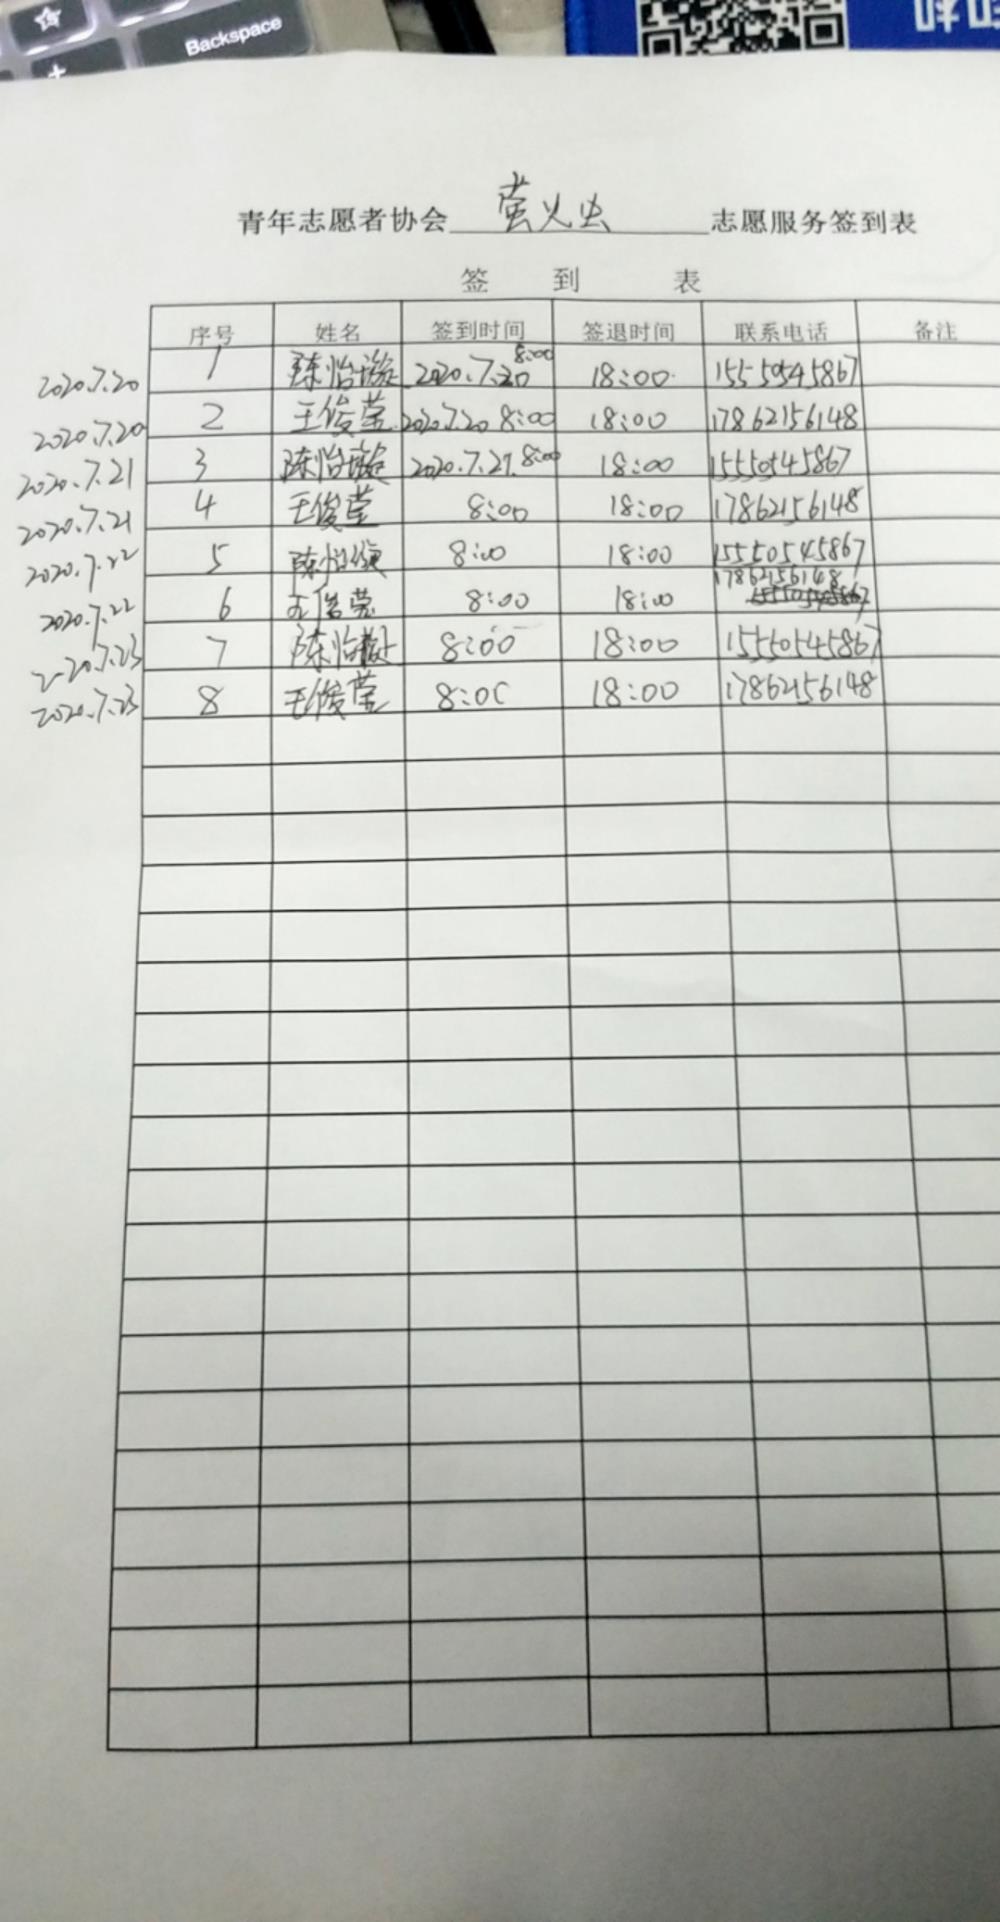 Backspace
青年志愿者协会 萤火虫 志愿服务签到表
签 到 表
序号 姓名 签到时间 签退时间 联系电话 备注
2020.7.20 1 陈怡璇 2020.7.20 8:00 18:00 15550545867
2020.7.20 2 王俊莹 2020.7.20 8:00 18:00 17862156148
2020.7.21 3 陈怡璇 2020.7.21 8:00 18:00 15550545867
2020.7.21 4 王俊莹 8:00 18:00 17862156148
2020.7.22 5 陈怡璇 8:00 18:00 15550545867
2020.7.22 6 王俊莹 8:00 18:00 17862156148
2020.7.23 7 陈怡璇 8:00 18:00 15550545867
2020.7.23 8 王俊莹 8:00 18:00 17862156148